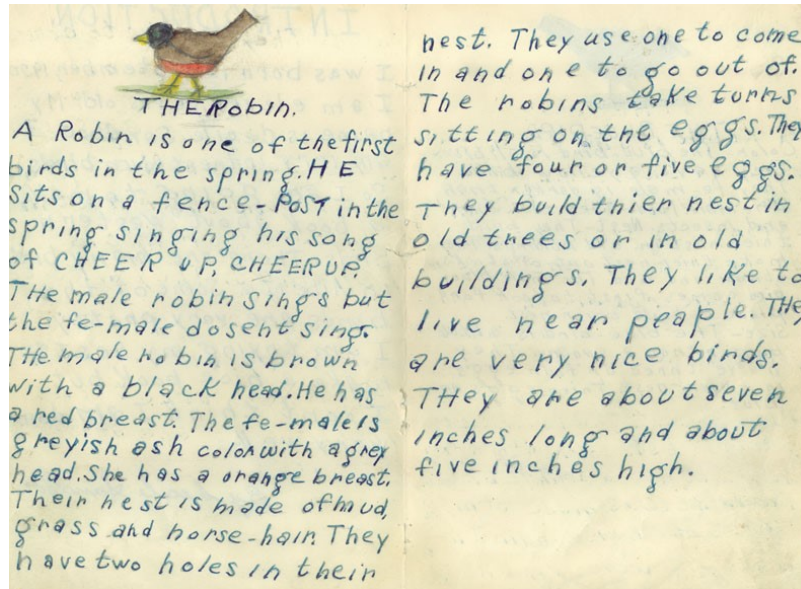 THE Robin.
A Robin is one of the first
birds in the spring. HE
sits on a fence-POST in the
spring singing his song
of CHEER UP, CHEER UP.
THe male robin sings but
the fe-male dosent sing.
THe male robin is brown
with a black head. He has
a red breast. The fe-male is
greyish ash color with a grey
head. She has a orange breast.
Their nest is made of mud,
grass and horse-hair. They
have two holes in their
nest. They use one to come
in and one to go out of.
The robins take turns
sitting on the eggs. They
have four or five eggs.
They build thier nest in
old trees or in old
buildings. They like to
live near peaple. THey
are very nice birds.
THey are about seven
inches long and about
five inches high.